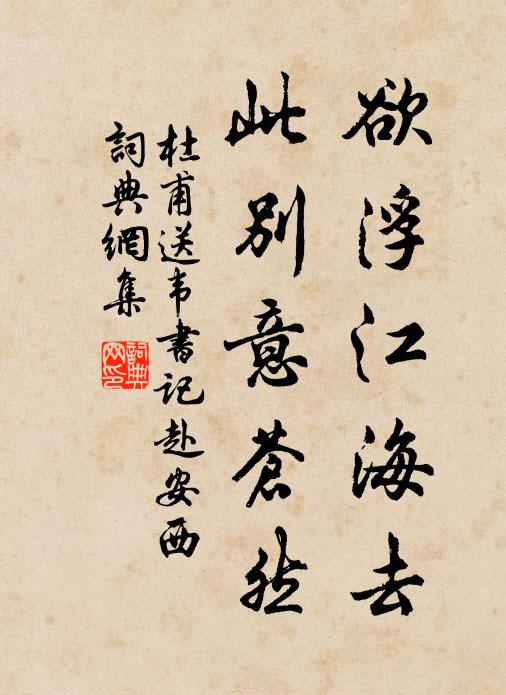 欲浮江海去
此別意蒼然
杜甫送韦書记赴安西
詞典網集
詞典网印